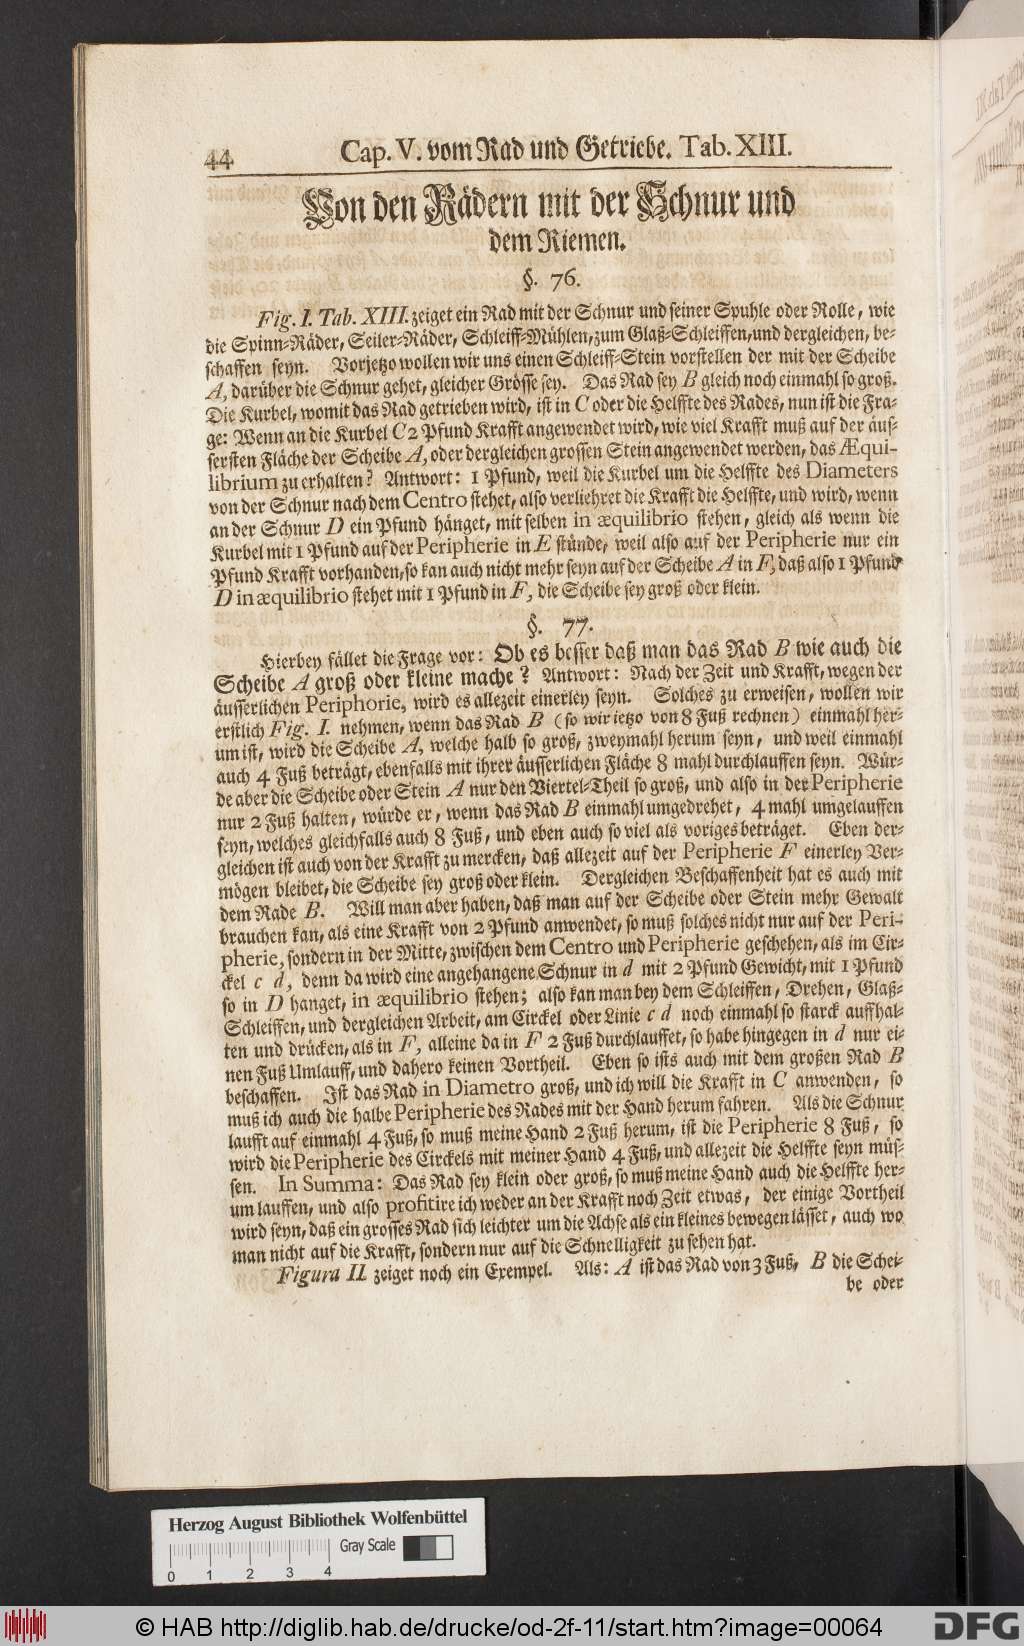 44 Cap. V. vom Rad und Getriebe. Tab. XIII.
Von den Rädern mit der Schnur und
dem Riemen.
§. 76.
Fig. I. Tab. XIII. zeiget ein Rad mit der Schnur und seiner Spuhle oder Rolle, wie
die Spinn-Räder, Seiler-Räder, Schleiff-Mühlen, zum Glaß-Schleiffen, und dergleichen, be-
schaffen seyn. Vorjetzo wollen wir uns einen Schleiff-Stein vorstellen der mit der Scheibe
A, darüber die Schnur gehet, gleicher Grösse sey. Das Rad sey B gleich noch einmahl so groß.
Die Kurbel, womit das Rad getrieben wird, ist in C oder die Helffte des Rades, nun ist die Fra-
ge: Wenn an die Kurbel C 2 Pfund Krafft angewendet wird, wie viel Krafft muß auf der äus-
sersten Fläche der Scheibe A, oder dergleichen grossen Stein angewendet werden, das Æqui-
librium zu erhalten? Antwort: 1 Pfund, weil die Kurbel um die Helffte des Diameters
von der Schnur nach dem Centro stehet, also verliehret die Krafft die Helffte, und wird, wenn
an der Schnur D ein Pfund hänget, mit selben in æquilibrio stehen, gleich als wenn die
Kurbel mit 1 Pfund auf der Peripherie in E stünde, weil also auf der Peripherie nur ein
Pfund Krafft vorhanden, so kan auch nicht mehr seyn auf der Scheibe A in F, daß also 1 Pfund
D in æquilibrio stehet mit 1 Pfund in F, die Scheibe sey groß oder klein.
§. 77.
Hierbey fället die Frage vor: Ob es besser daß man das Rad B wie auch die
Scheibe A groß oder kleine mache? Antwort: Nach der Zeit und Krafft, wegen der
äusserlichen Periphorie, wird es allezeit einerley seyn. Solches zu erweisen, wollen wir
erstlich Fig. I. nehmen, wenn das Rad B (so wir ietzo von 8 Fuß rechnen) einmahl her-
um ist, wird die Scheibe A, welche halb so groß, zweymahl herum seyn, und weil einmahl
auch 4 Fuß beträgt, ebenfalls mit ihrer äusserlichen Fläche 8 mahl durchlauffen seyn. Wür-
de aber die Scheibe oder Stein A nur den Viertel-Theil so groß, und also in der Peripherie
nur 2 Fuß halten, würde er, wenn das Rad B einmahl umgedrehet, 4 mahl umgelauffen
seyn, welches gleichfalls auch 8 Fuß, und eben auch so viel als voriges beträget. Eben der-
gleichen ist auch von der Krafft zu mercken, daß allezeit auf der Peripherie F einerley Ver-
mögen bleibet, die Scheibe sey groß oder klein. Dergleichen Beschaffenheit hat es auch mit
dem Rade B. Will man aber haben, daß man auf der Scheibe oder Stein mehr Gewalt
brauchen kan, als eine Krafft von 2 Pfund anwendet, so muß solches nicht nur auf der Peri-
pherie, sondern in der Mitte, zwischen dem Centro und Peripherie geschehen, als im Cir-
ckel c d, denn da wird eine angehangene Schnur in d mit 2 Pfund Gewicht, mit 1 Pfund
so in D hanget, in æquilibrio stehen; also kan man bey dem Schleiffen, Drehen, Glaß-
Schleiffen, und dergleichen Arbeit, am Circkel oder Linie c d noch einmahl so starck auffhal-
ten und drücken, als in F, alleine da in F 2 Fuß durchlauffet, so habe hingegen in d nur ei-
nen Fuß Umlauff, und dahero keinen Vortheil. Eben so ists auch mit dem großen Rad B
beschaffen. Ist das Rad in Diametro groß, und ich will die Krafft in C anwenden, so
muß ich auch die halbe Peripherie des Rades mit der Hand herum fahren. Als die Schnur
laufft auf einmahl 4 Fuß, so muß meine Hand 2 Fuß herum, ist die Peripherie 8 Fuß, so
wird die Peripherie des Circkels mit meiner Hand 4 Fuß, und allezeit die Helffte seyn müs-
sen. In Summa: Das Rad sey klein oder groß, so muß meine Hand auch die Helffte her-
um lauffen, und also profitire ich weder an der Krafft noch Zeit etwas, der einige Vortheil
wird seyn, daß ein grosses Rad sich leichter um die Achse als ein kleines bewegen lässet, auch wo
man nicht auf die Krafft, sondern nur auf die Schnelligkeit zu sehen hat.
Figura II. zeiget noch ein Exempel. Als: A ist das Rad von 3 Fuß, B die Schei-
be oder
Herzog August Bibliothek Wolfenbüttel
Gray Scale
0 1 2 3 4
© HAB http://diglib.hab.de/drucke/od-2f-11/start.htm?image=00064
DFG